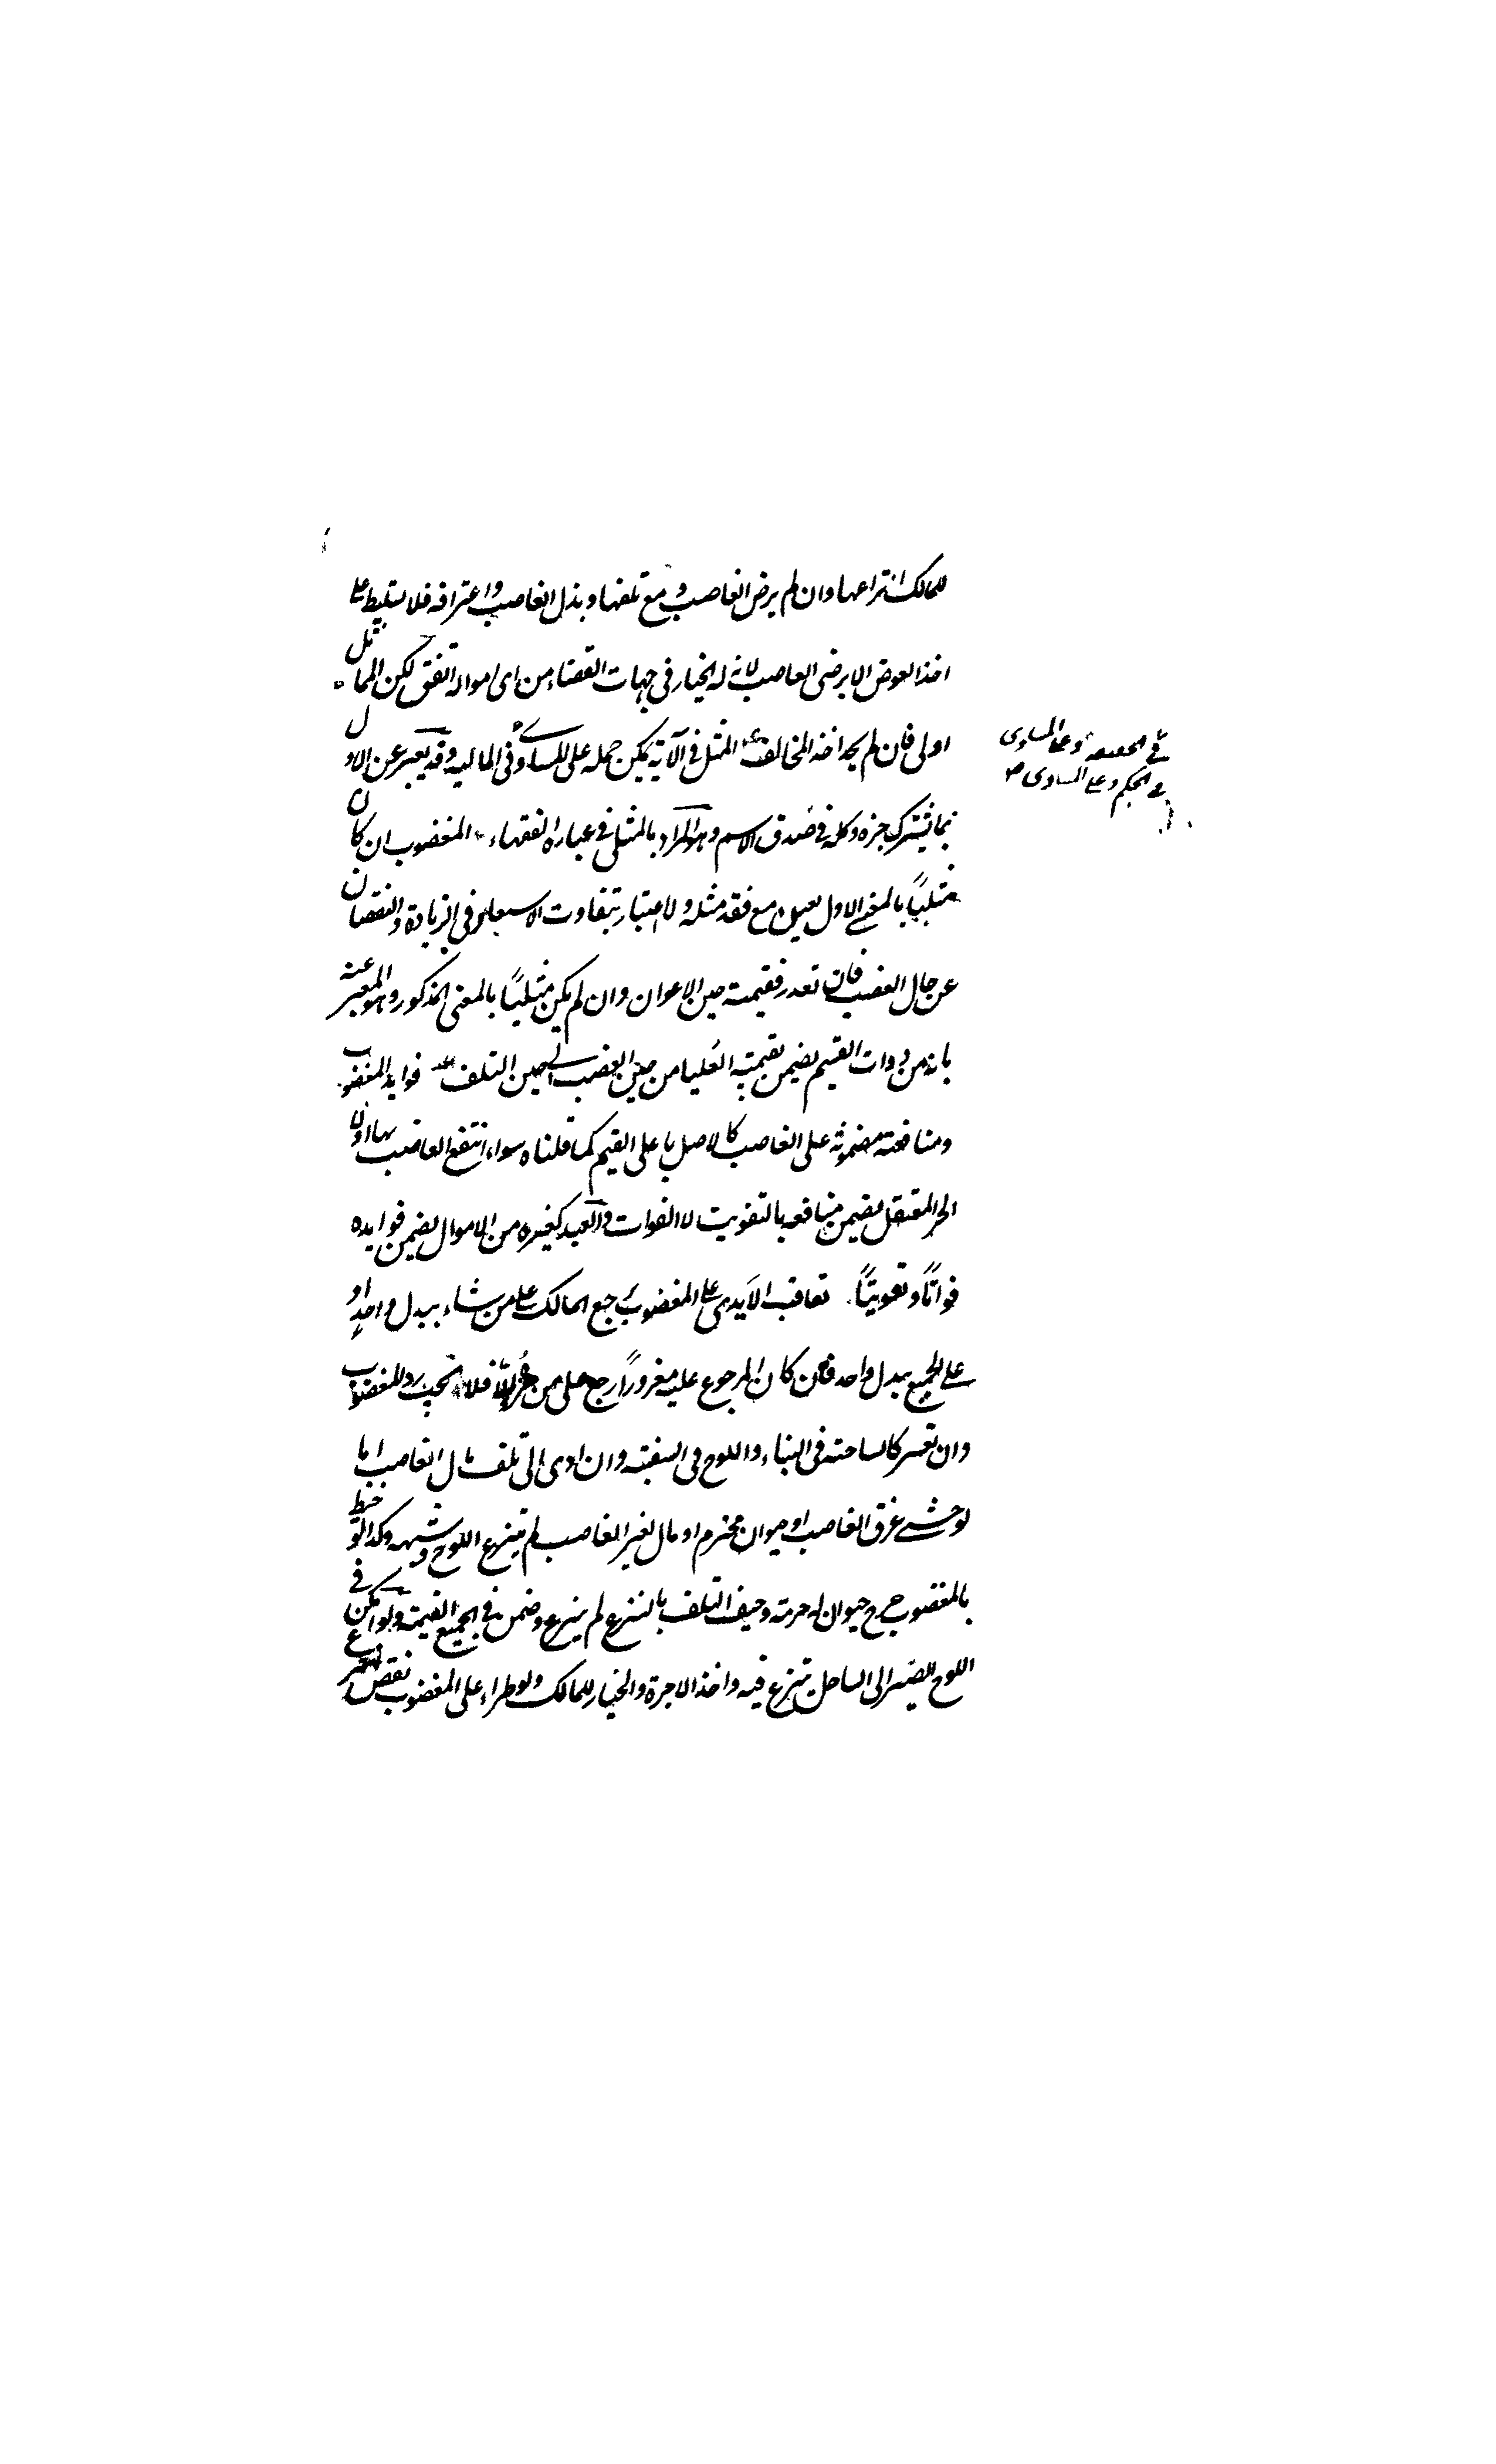 للمالك انتزاعها وان لم يرض الغاصب و مع تلفها و بذل الغاصب واعترافه فلا تسليط على
اخذ العوض الا برضى الغاصب لانه له الخيار في جهات القضاء من اى امواله اتفق لكن المماثل
اولى فان لم يجد اخذ المخالف المثل في الآية يمكن حمله على المساوي في الماليه وقد يعبر عن الاول
في الحقيقة وعلى المساوى
في الحكم وعلى المساوى
بما يشترك جزه وكله في صدق الاسم وهو المراد بالمثلى في عبارة الفقهاء المغضوب ان كان
مثليًا بالمغنى الاول مع فقد مثله ولا اعتبار بتفاوت الاسعار في الزيادة والنقصان
عن حال الغصب فان تعذر فقيمته حين الاعواز وان لم يكن مثليًا بالمعنى المذكور وهو المعبر عنه
بانه من ذوات القيم يضمن بقيمته العُليا من حين الغصب الى حين التلف فوايد المغضوب
ومنافعه مضمونة على الغاصب كالاصل باعلى القيم كما قلناه سواء انتفع الغاصب بها او لا
الحر المعتقل يضمن منافعه بالتفويت لا الفوات والعبد كغيره من الاموال يضمن فوايده
فواتًا وتفويتًا تعاقب الايدى على المغضوب يرجع المالك على من شاء ببدل واحد او
على الجميع ببدل واحد فمن كان المرجوع عليه مغرورًا رجع على من غره والا فلا يجب رد المغضوب
وان تعسر كالساحة في البناء واللوح في السفينة وان ادى الى تلف مال الغاصب اما
لو خشى غرق الغاصب او حيوان محترم او مال لغير الغاصب لم ينتزع اللوح وشبهه وكذا لو خيط
بالمغضوب جرح حيوان له حرمة وخيف التلف بالنزع لم ينزع وضمن في الجميع القيمة ولو امكن في
اللوح المصير الى الساحل ينتزع فيه واخذ الاجرة والخيار للمالك ولو طراء على المغضوب نقص